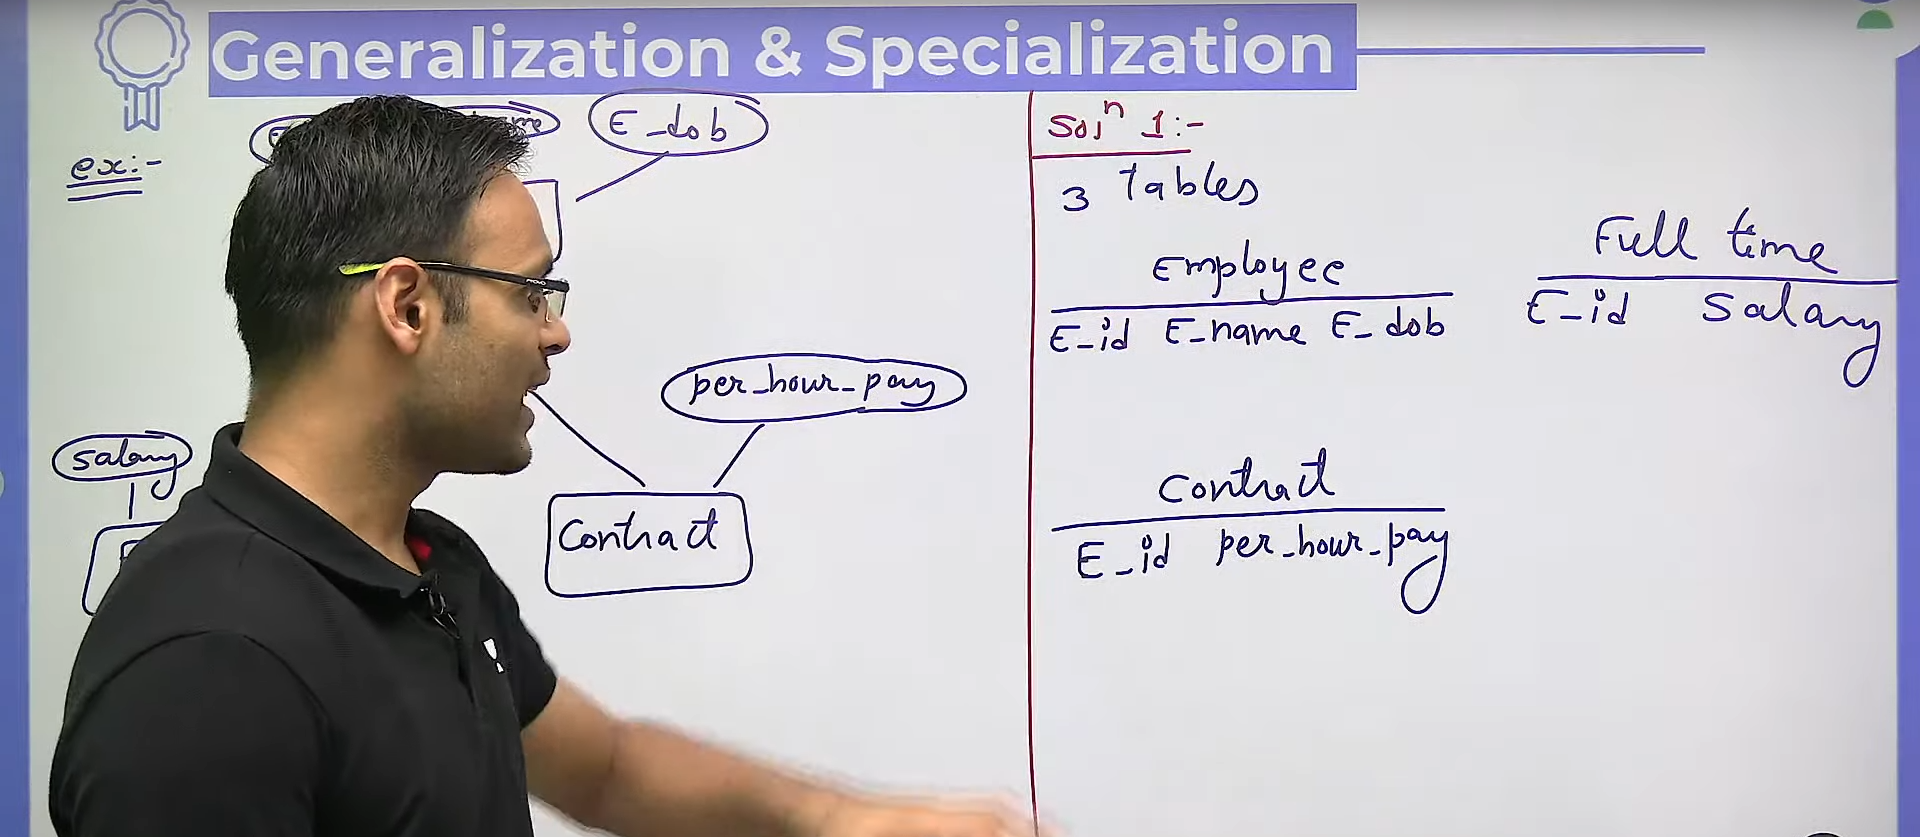 Generalization & Specialization
ex:-
E_dob
salary
per_hour_pay
Contract
Solⁿ 1:-
3 Tables
Employee
E_id E_name E_dob
Full time
E_id Salary
Contract
E_id per_hour_pay